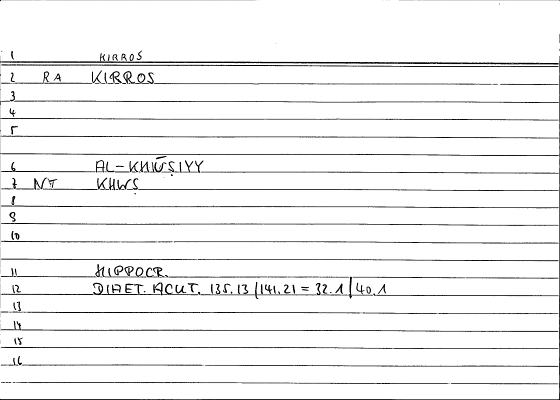 1 KIRROS
2 RA KIRROS
3
4
5
6 AL-KHIŪṢIYY
7 NT KHWṢ
8
9
10
11 HIPPOCR.
12 DIAET. ACUT. 135.13/141.21 = 32.1/40.1
13
14
15
16